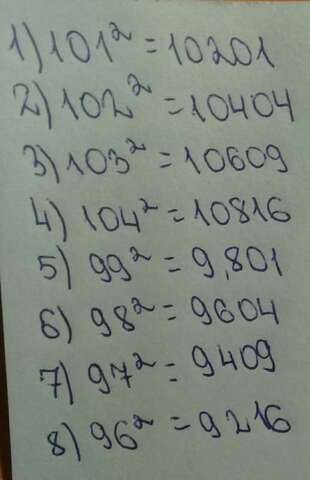 1) 101² = 10201
2) 102² = 10404
3) 103² = 10609
4) 104² = 10816
5) 99² = 9,801
6) 98² = 9604
7) 97² = 9409
8) 96² = 9216